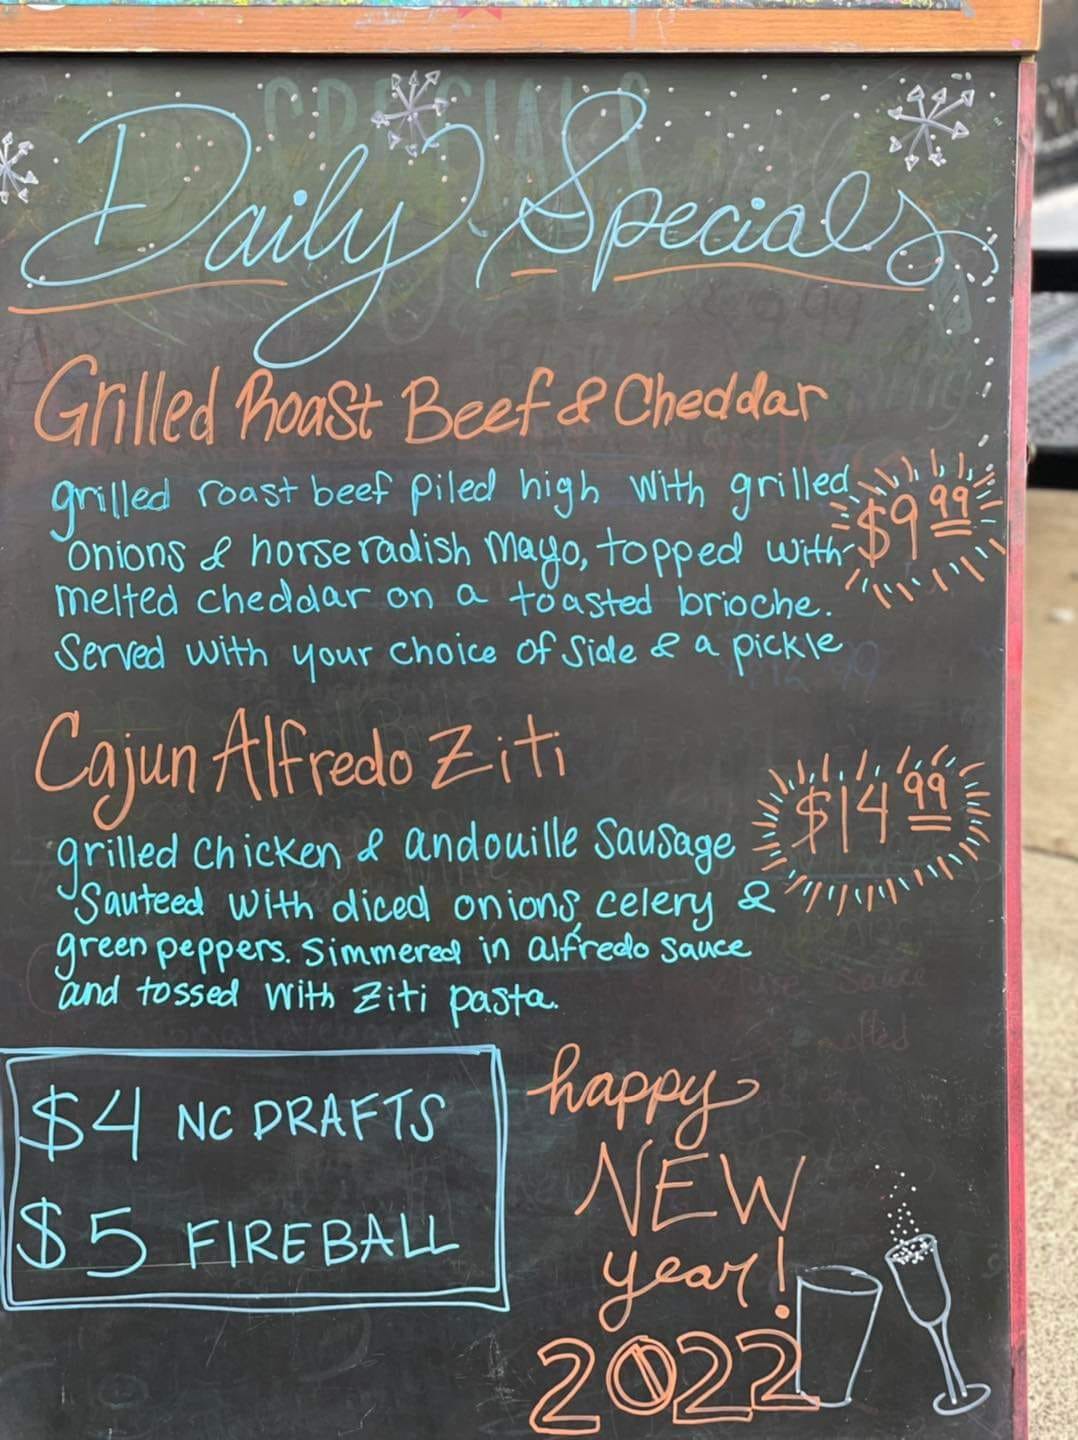 Daily Specials
Grilled Roast Beef & Cheddar
grilled roast beef piled high with grilled
onions & horseradish mayo, topped with
melted cheddar on a toasted brioche.
Served with your choice of side & a pickle
$9.99
Cajun Alfredo Ziti
grilled chicken & andouille sausage
sauteed with diced onions, celery &
green peppers. Simmered in alfredo sauce
and tossed with ziti pasta.
$14.99
$4 NC DRAFTS
$5 FIREBALL
happy
NEW
year!
2022